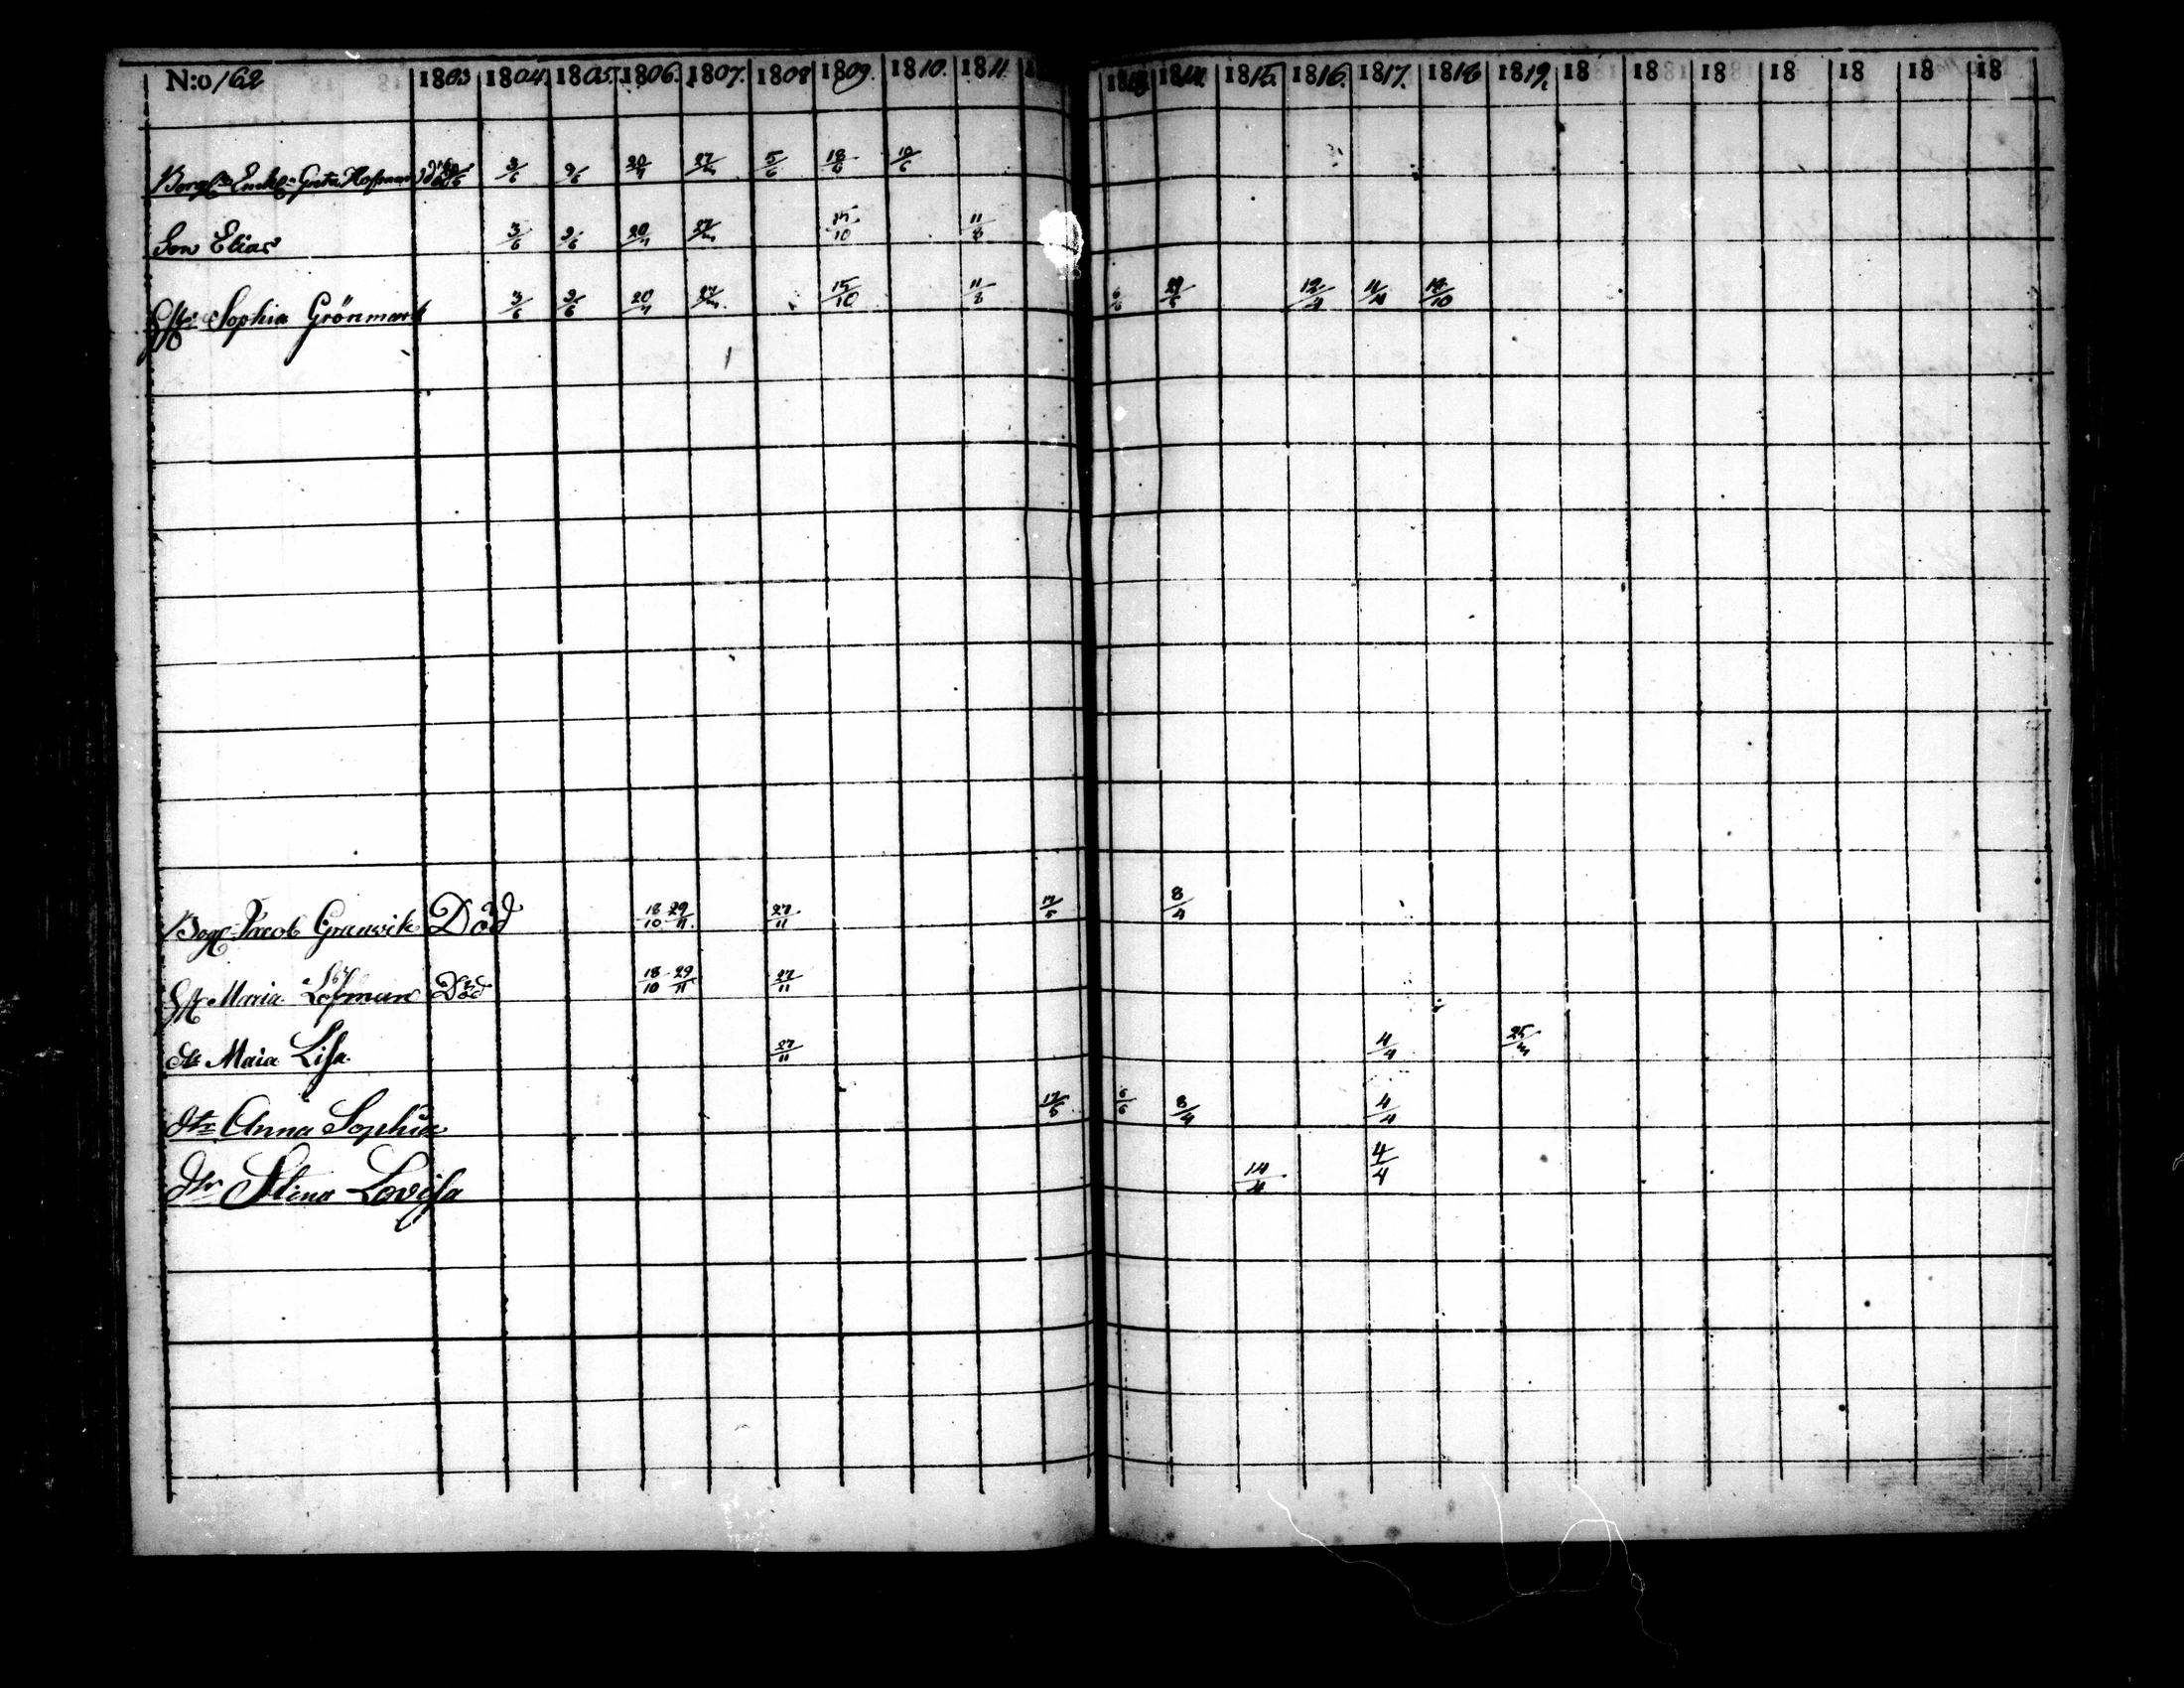 N:o 162 1803 1804. 1805. 1806. 1807. 1808 1809. 1810. 1811. 1814. 1815. 1816. 1817. 1818 1819, 18 18 18 18 18 18 18
Greta Hofman död 3/6 9/6 20/7 27/ 5/6 18/6 10/6
Son Elias 3/6 9/6 20/7 27/ 15/10 11/8
Sophia Grönmark 3/6 9/6 20/7 27/ 15/10 11/8 6/6 12/4 4/4 18/10
Jacob Granvik Död 18/10 29/11. 27/11 17/5 8/4
Maria Löfman Död 18/10 29/11 27/11
dr Maia Lisa. 27/11 4/4 25/
dtr Anna Sophia 17/5. 6/6 8/4 4/4
dtr Stina Lovisa 14/4 4/4